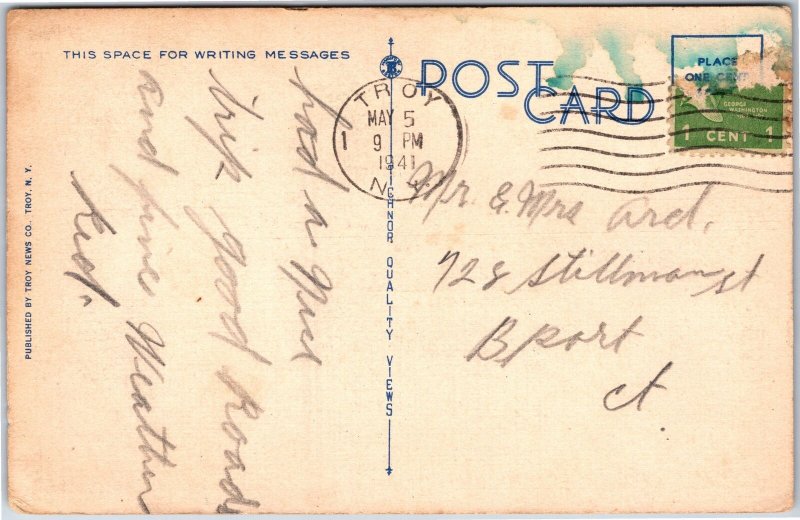 THIS SPACE FOR WRITING MESSAGES
POST CARD
PLACE
ONE CENT
GEORGE
WASHINGTON
1 CENT 1
TROY
MAY 5
1 9 PM
1941
N.Y.
had a nice
trip good Roads
and fine Weather
Mr. & Mrs Ard.
728 Stillman st
Bport
ct.
TICHNOR QUALITY VIEWS
PUBLISHED BY TROY NEWS CO., TROY, N. Y.